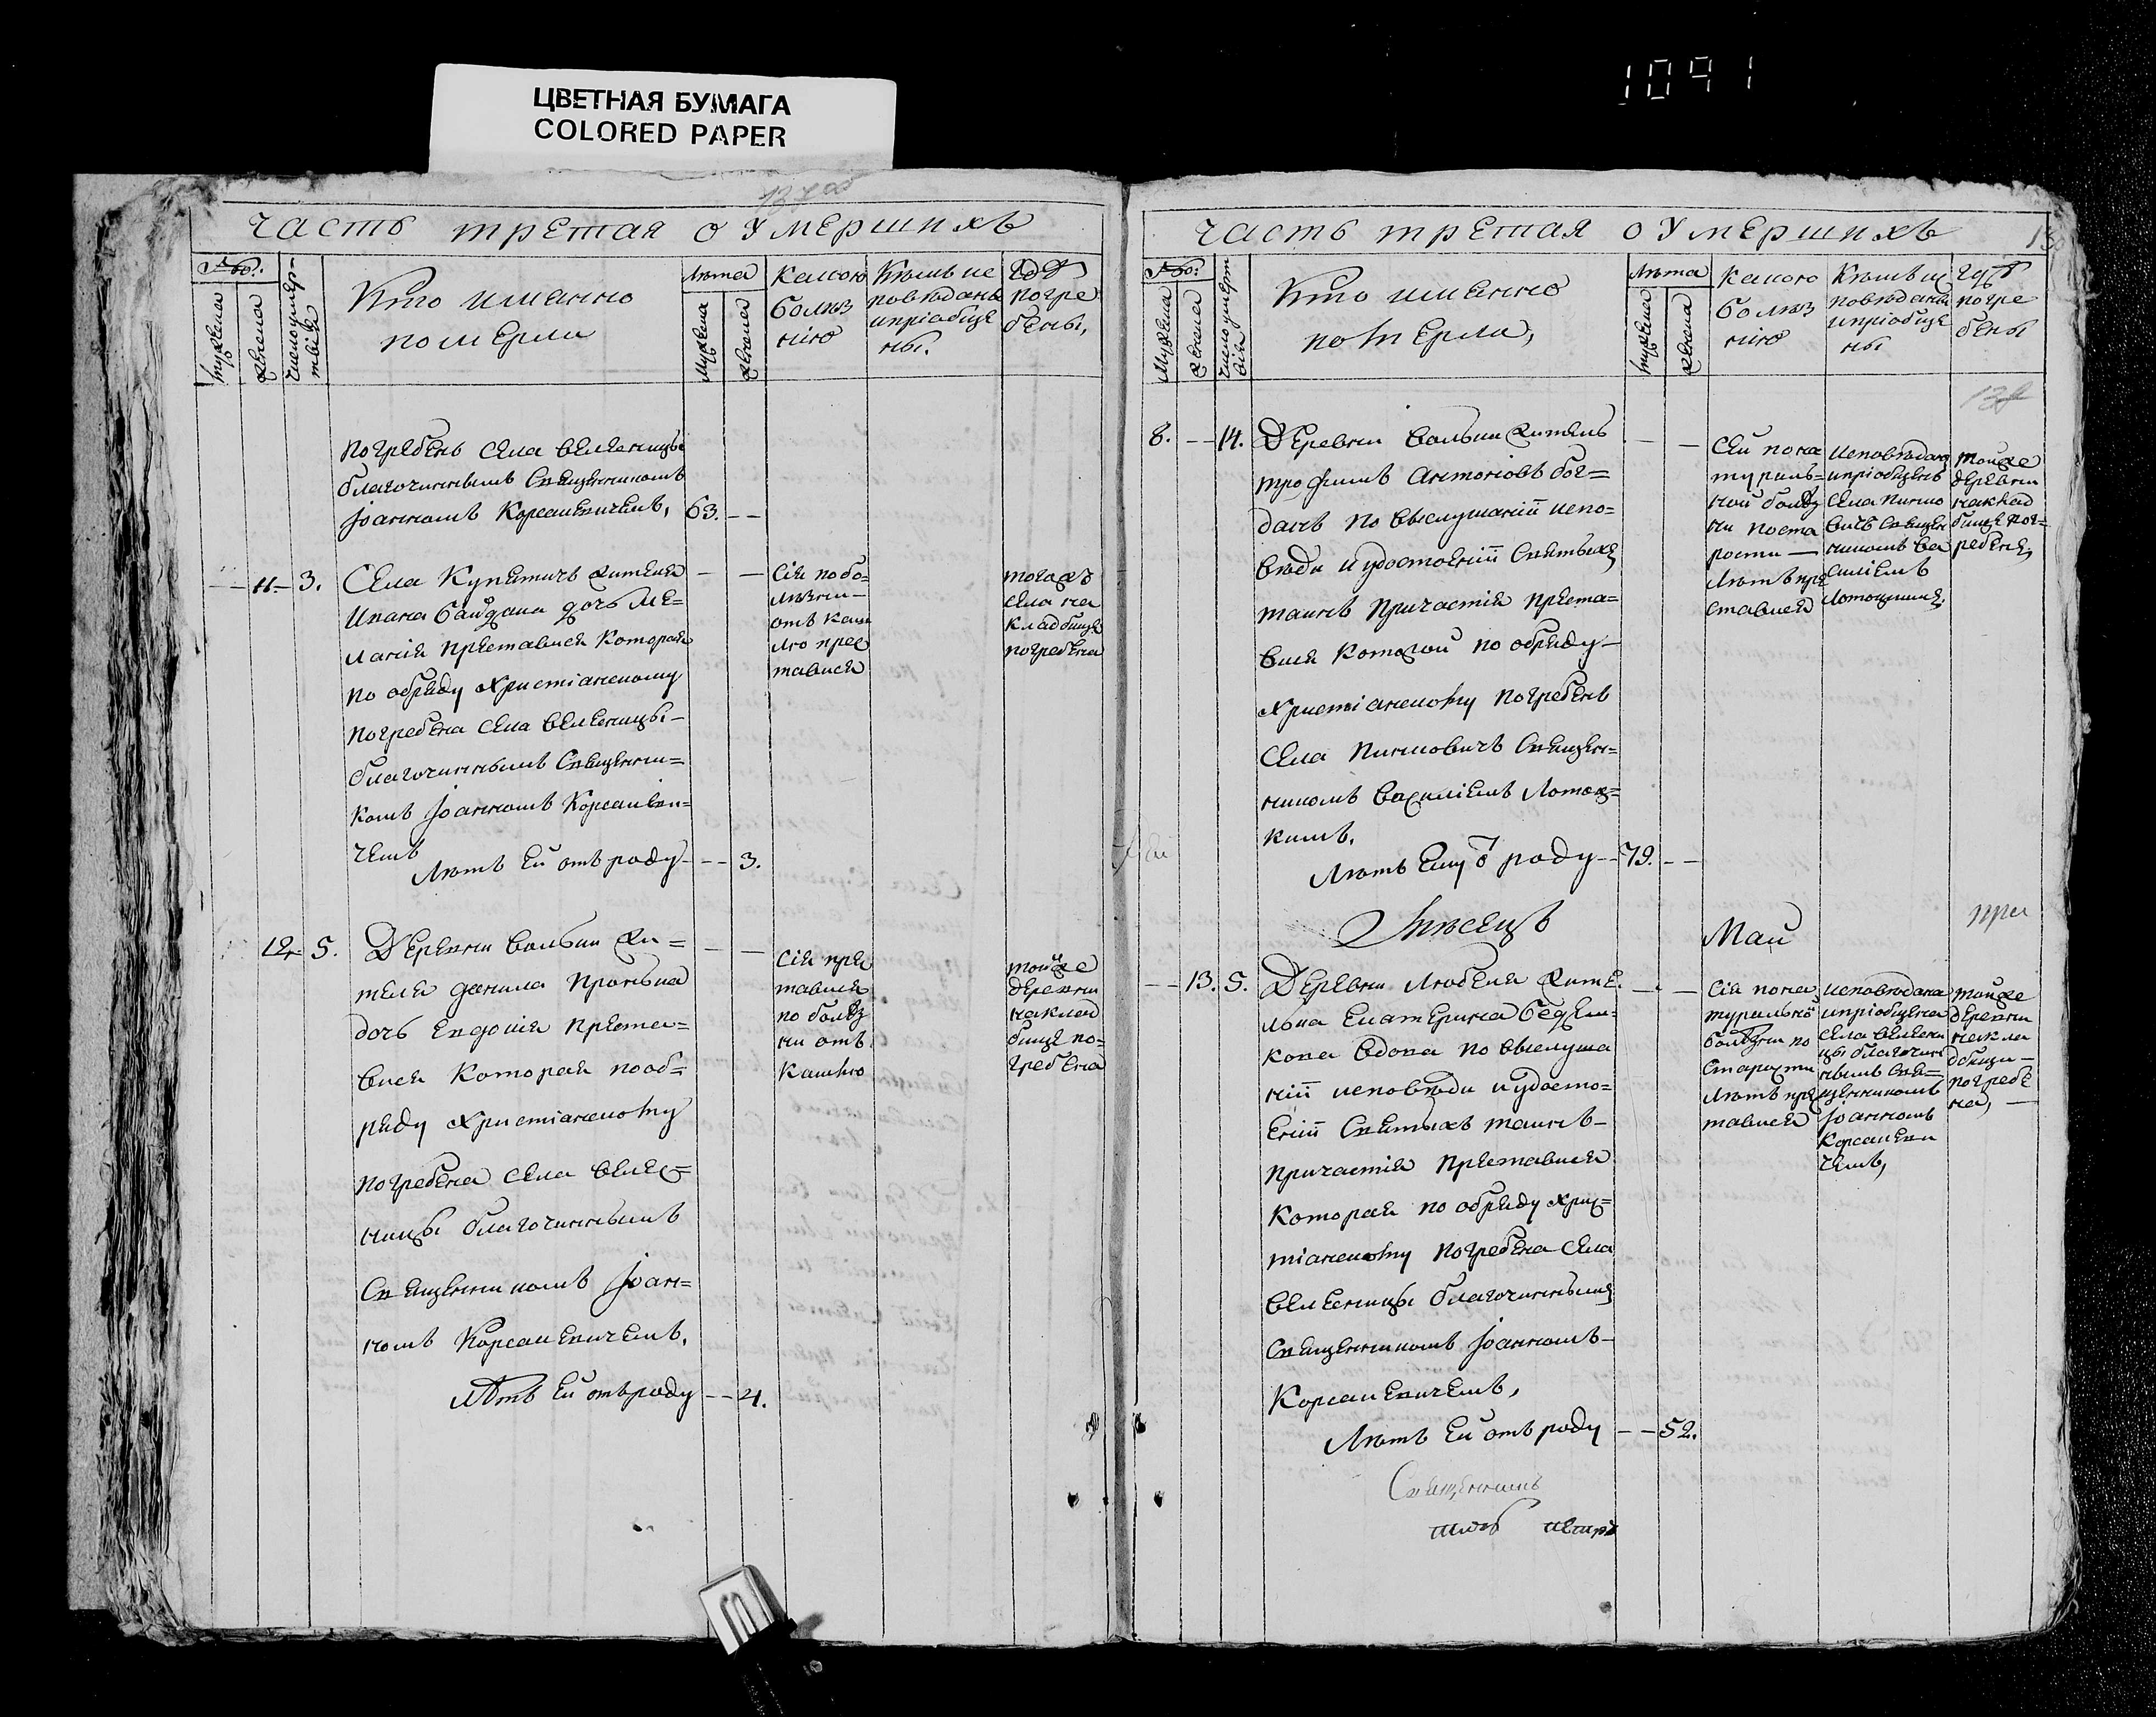 1091
ЦВЕТНАЯ БУМАГА
COLORED PAPER
137об
Часть третая о умершихъ
№бо:
мужеска
женска
число умер-
твіѣ
Кто именно
померли
лѣта
мужеска
женска
какою
болѣз
нію
Кѣмъ ис
повѣданы
ипріобще
ны.
Гдѣ
погре
бены,
погребенъ села веленицы
благочиннымъ Священникомъ
Іоанномъ Корсакевичемъ, 63. --
-- 11. 3. Села Купятичъ жителя
Ивана байдака дочь Ме=
ланія преставися которая
по обряду христіанскому
погребена села веленицы-
благочиннымъ Священни=
комъ Іоанномъ Корсакеви=
чемъ
Лѣтъ ей отъ роду -- 3.
сія побо=
лѣзни-
отъ каш
лю прес
тавися
тогожъ
села на
кладбище
погребена
12. 5. Деревни вольки жи=
теля данила
дочь Евдокія преста=
вися которая пооб=
ряду христіанскому
погребена села велес=
ницы благочиннымъ
Священникомъ Іоан=
номъ Корсакевичемъ.
Лѣтъ ей отъ роду -- 4.
сія пре
тавися
по болѣз
ни отъ
кашлю
тойже
деревни
наклад
бище по=
гребена
Часть третая о умершихъ
№бо:
мужеска
женска
число умерт
вія
Кто именно
померли,
лѣта
мужеска
женска
какою
болѣз
нію
Кѣмъ ис
повѣданы
ипріобще
ны
гдѣ
погре
бены
138
8. -- 14. Деревни вольки житель
трофимъ антоновъ бог=
данъ по выслушаніи испо=
вѣди и удостоеніи святыхъ
таинъ причастія преста=
вися которой по обряду-
христіанскому погребенъ
села пинковичъ священ=
никомъ василіемъ Лотоц=
кимъ.
Лѣтъ ему о роду -- 79. --
сей пона
тураль=
ной болѣз
ни поста
рости —
лѣтъ пре
ставися
исповѣданъ
ипріобщенъ
села пинко
вичъ священ
никомъ ва
силіемъ
Лотоцкимъ.
тойже
деревни
наклад
бище пог=
ребенъ,
Мѣсецъ Май
при
-- 13. 5. Деревни Любеля жите.
льна екатерина
вдова по выслуша
ніи исповѣди и удосто=
еніи святыхъ таинъ-
причастія преставися
которая по обряду хрис=
тіанскому погребена села
веленицы благочиннымъ
Священникомъ Іоанномъ-
Корсакевичемъ,
Лѣтъ ей отъ роду -- 52.
сія пона
туральной
болѣзни по
старости
лѣтъ пре
тавися
исповѣдана
ипріобщена
села велени
цы благочин
нымъ свя=
щенникомъ
Іоанномъ
Корсакеви
чемъ,
тойже
деревни
накла
дбищи-
погребе
на, —